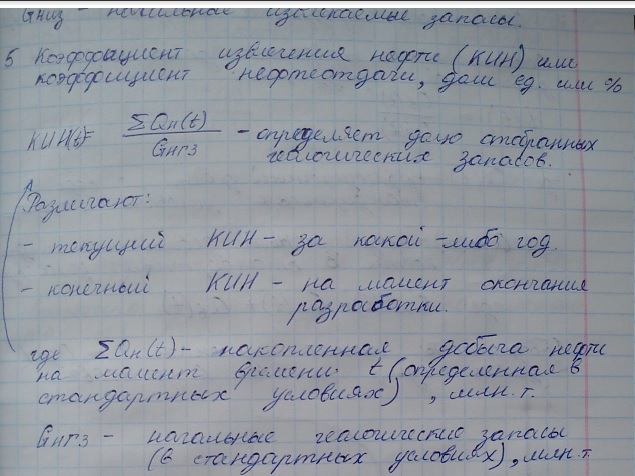 Gниз - начальные извлекаемые запасы.
5 Коэффициент извлечения нефти (КИН) или
коэффициент нефтеотдачи, доли ед. или %
КИН(t)= ΣQн(t) / Gнгз - определяет долю отобранных
геологических запасов.
Различают:
- текущий КИН - за какой-либо год.
- конечный КИН - на момент окончания
разработки.
где ΣQн(t) - накопленная добыча нефти
на момент времени t (определенная в
стандартных условиях), млн.т.
Gнгз - начальные геологические запасы
(в стандартных условиях), млн.т.